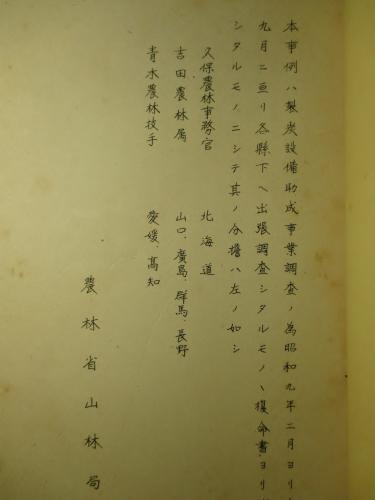 本事例ハ製炭設備助成事業調査ノ為昭和九年二月ヨリ
九月ニ亘リ各縣下ヘ出張調査シタルモノヽ復命書ヨリ
シタルモノニシテ其ノ分擔ハ左ノ如シ
久保農林事務官 北海道
吉田農林属 山口、廣島、群馬、長野
青木農林技手 愛媛、高知
農林省山林局